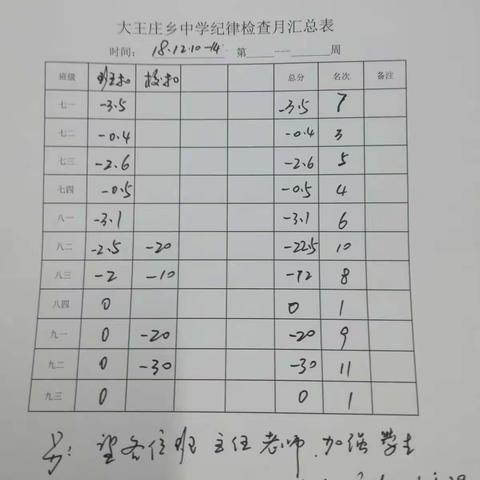 大王庄乡中学纪律检查月汇总表
时间: 18.12.10-14 第____---______周
班级 班扣 校扣 总分 名次 备注
七一 -3.5 -3.5 7
七二 -0.4 -0.4 3
七三 -2.6 -2.6 5
七四 -0.5 -0.5 4
八一 -3.1 -3.1 6
八二 -2.5 -20 -22.5 10
八三 -2 -10 -12 8
八四 0 0 1
九一 0 -20 -20 9
九二 0 -30 -30 11
九三 0 0 1
望各位班主任老师,加强学生